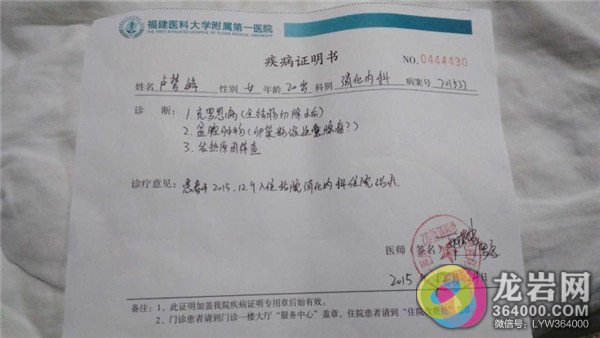 福建医科大学附属第一医院
THE FIRST AFFILIATED HOSPITAL OF FUJIAN MEDICAL UNIVERSITY
疾病证明书
NO.0444430
姓名 性别 女 年龄 20岁 科别 消化内科 病案号 701533
诊 断: 1.克罗恩病(全结肠切除术后)
2.盆腔肿物(卵巢
3.发热原因待查
诊疗意见: 患者于2015.12.9入住我院消化内科住院治疗.
医师(签名)
2015 年
备注:1、此证明加盖我院疾病证明专用章后始有效。
2、门诊患者请到门诊一楼大厅“服务中心”盖章,住院患者请到“住院
龙岩
364000.com
微信号:LYW364000